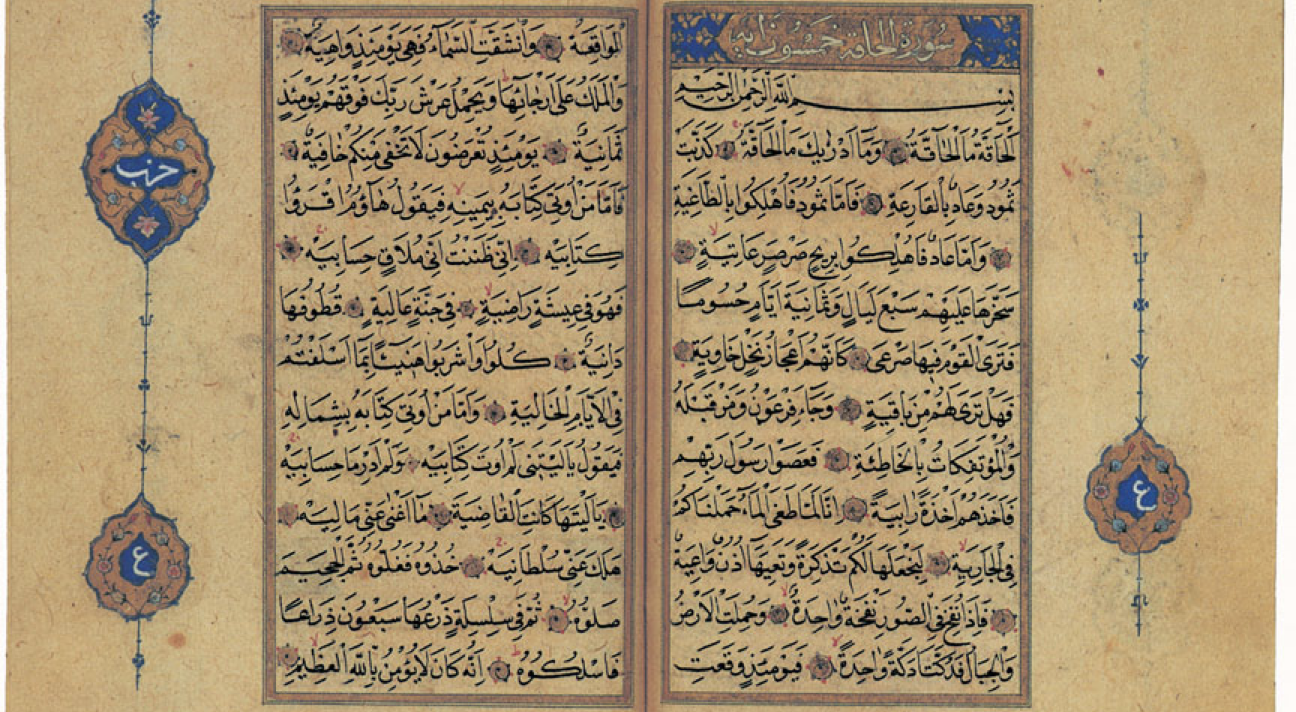 سورة الحاقة خمسون آية
بسم الله الرحمن الرحيم
اَلْحَاقَّةُ مَا الْحَاقَّةُ وَمَا اَدْرٰيكَ مَا الْحَاقَّةُ كَذَّبَتْ
ثَمُودُ وَعَادٌ بِالْقَارِعَةِ فَاَمَّا ثَمُودُ فَاُهْلِكُوا بِالطَّاغِيَةِ
وَاَمَّا عَادٌ فَاُهْلِكُوا بِرِيحٍ صَرْصَرٍ عَاتِيَةٍ
سَخَّرَهَا عَلَيْهِمْ سَبْعَ لَيَالٍ وَثَمَانِيَةَ اَيَّامٍ حُسُومًا
فَتَرَى الْقَوْمَ فِيهَا صَرْعٰى كَاَنَّهُمْ اَعْجَازُ نَخْلٍ خَاوِيَةٍ
فَهَلْ تَرٰى لَهُمْ مِنْ بَاقِيَةٍ وَجَاءَ فِرْعَوْنُ وَمَنْ قَبْلَهُ
وَالْمُؤْتَفِكَاتُ بِالْخَاطِئَةِ فَعَصَوْا رَسُولَ رَبِّهِمْ
فَاَخَذَهُمْ اَخْذَةً رَابِيَةً اِنَّا لَمَّا طَغَى الْمَاءُ حَمَلْنَاكُمْ
فِي الْجَارِيَةِ لِنَجْعَلَهَا لَكُمْ تَذْكِرَةً وَتَعِيَهَا اُذُنٌ وَاعِيَةٌ
فَاِذَا نُفِخَ فِي الصُّورِ نَفْخَةٌ وَاحِدَةٌ وَحُمِلَتِ الْاَرْضُ
وَالْجِبَالُ فَدُكَّتَا دَكَّةً وَاحِدَةً فَيَوْمَئِذٍ وَقَعَتِ
ع
الْوَاقِعَةُ وَانْشَقَّتِ السَّمَاءُ فَهِيَ يَوْمَئِذٍ وَاهِيَةٌ
وَالْمَلَكُ عَلٰى اَرْجَائِهَا وَيَحْمِلُ عَرْشَ رَبِّكَ فَوْقَهُمْ يَوْمَئِذٍ
ثَمَانِيَةٌ يَوْمَئِذٍ تُعْرَضُونَ لَا تَخْفٰى مِنْكُمْ خَافِيَةٌ
فَاَمَّا مَنْ اُوتِيَ كِتَابَهُ بِيَمِينِهِ فَيَقُولُ هَاؤُمُ اقْرَؤُا
كِتَابِيَهْ اِنِّي ظَنَنْتُ اَنِّي مُلَاقٍ حِسَابِيَهْ
فَهُوَ فِي عِيشَةٍ رَاضِيَةٍ فِي جَنَّةٍ عَالِيَةٍ قُطُوفُهَا
دَانِيَةٌ كُلُوا وَاشْرَبُوا هَنِيئًا بِمَا اَسْلَفْتُمْ
فِي الْاَيَّامِ الْخَالِيَةِ وَاَمَّا مَنْ اُوتِيَ كِتَابَهُ بِشِمَالِهِ
فَيَقُولُ يَالَيْتَنِي لَمْ اُوتَ كِتَابِيَهْ وَلَمْ اَدْرِ مَا حِسَابِيَهْ
يَالَيْتَهَا كَانَتِ الْقَاضِيَةَ مَا اَغْنٰى عَنِّي مَالِيَهْ
هَلَكَ عَنِّي سُلْطَانِيَهْ خُذُوهُ فَغُلُّوهُ ثُمَّ الْجَحِيمَ
صَلُّوهُ ثُمَّ فِي سِلْسِلَةٍ ذَرْعُهَا سَبْعُونَ ذِرَاعًا
فَاسْلُكُوهُ اِنَّهُ كَانَ لَا يُؤْمِنُ بِاللّٰهِ الْعَظِيمِ
حزب
ع